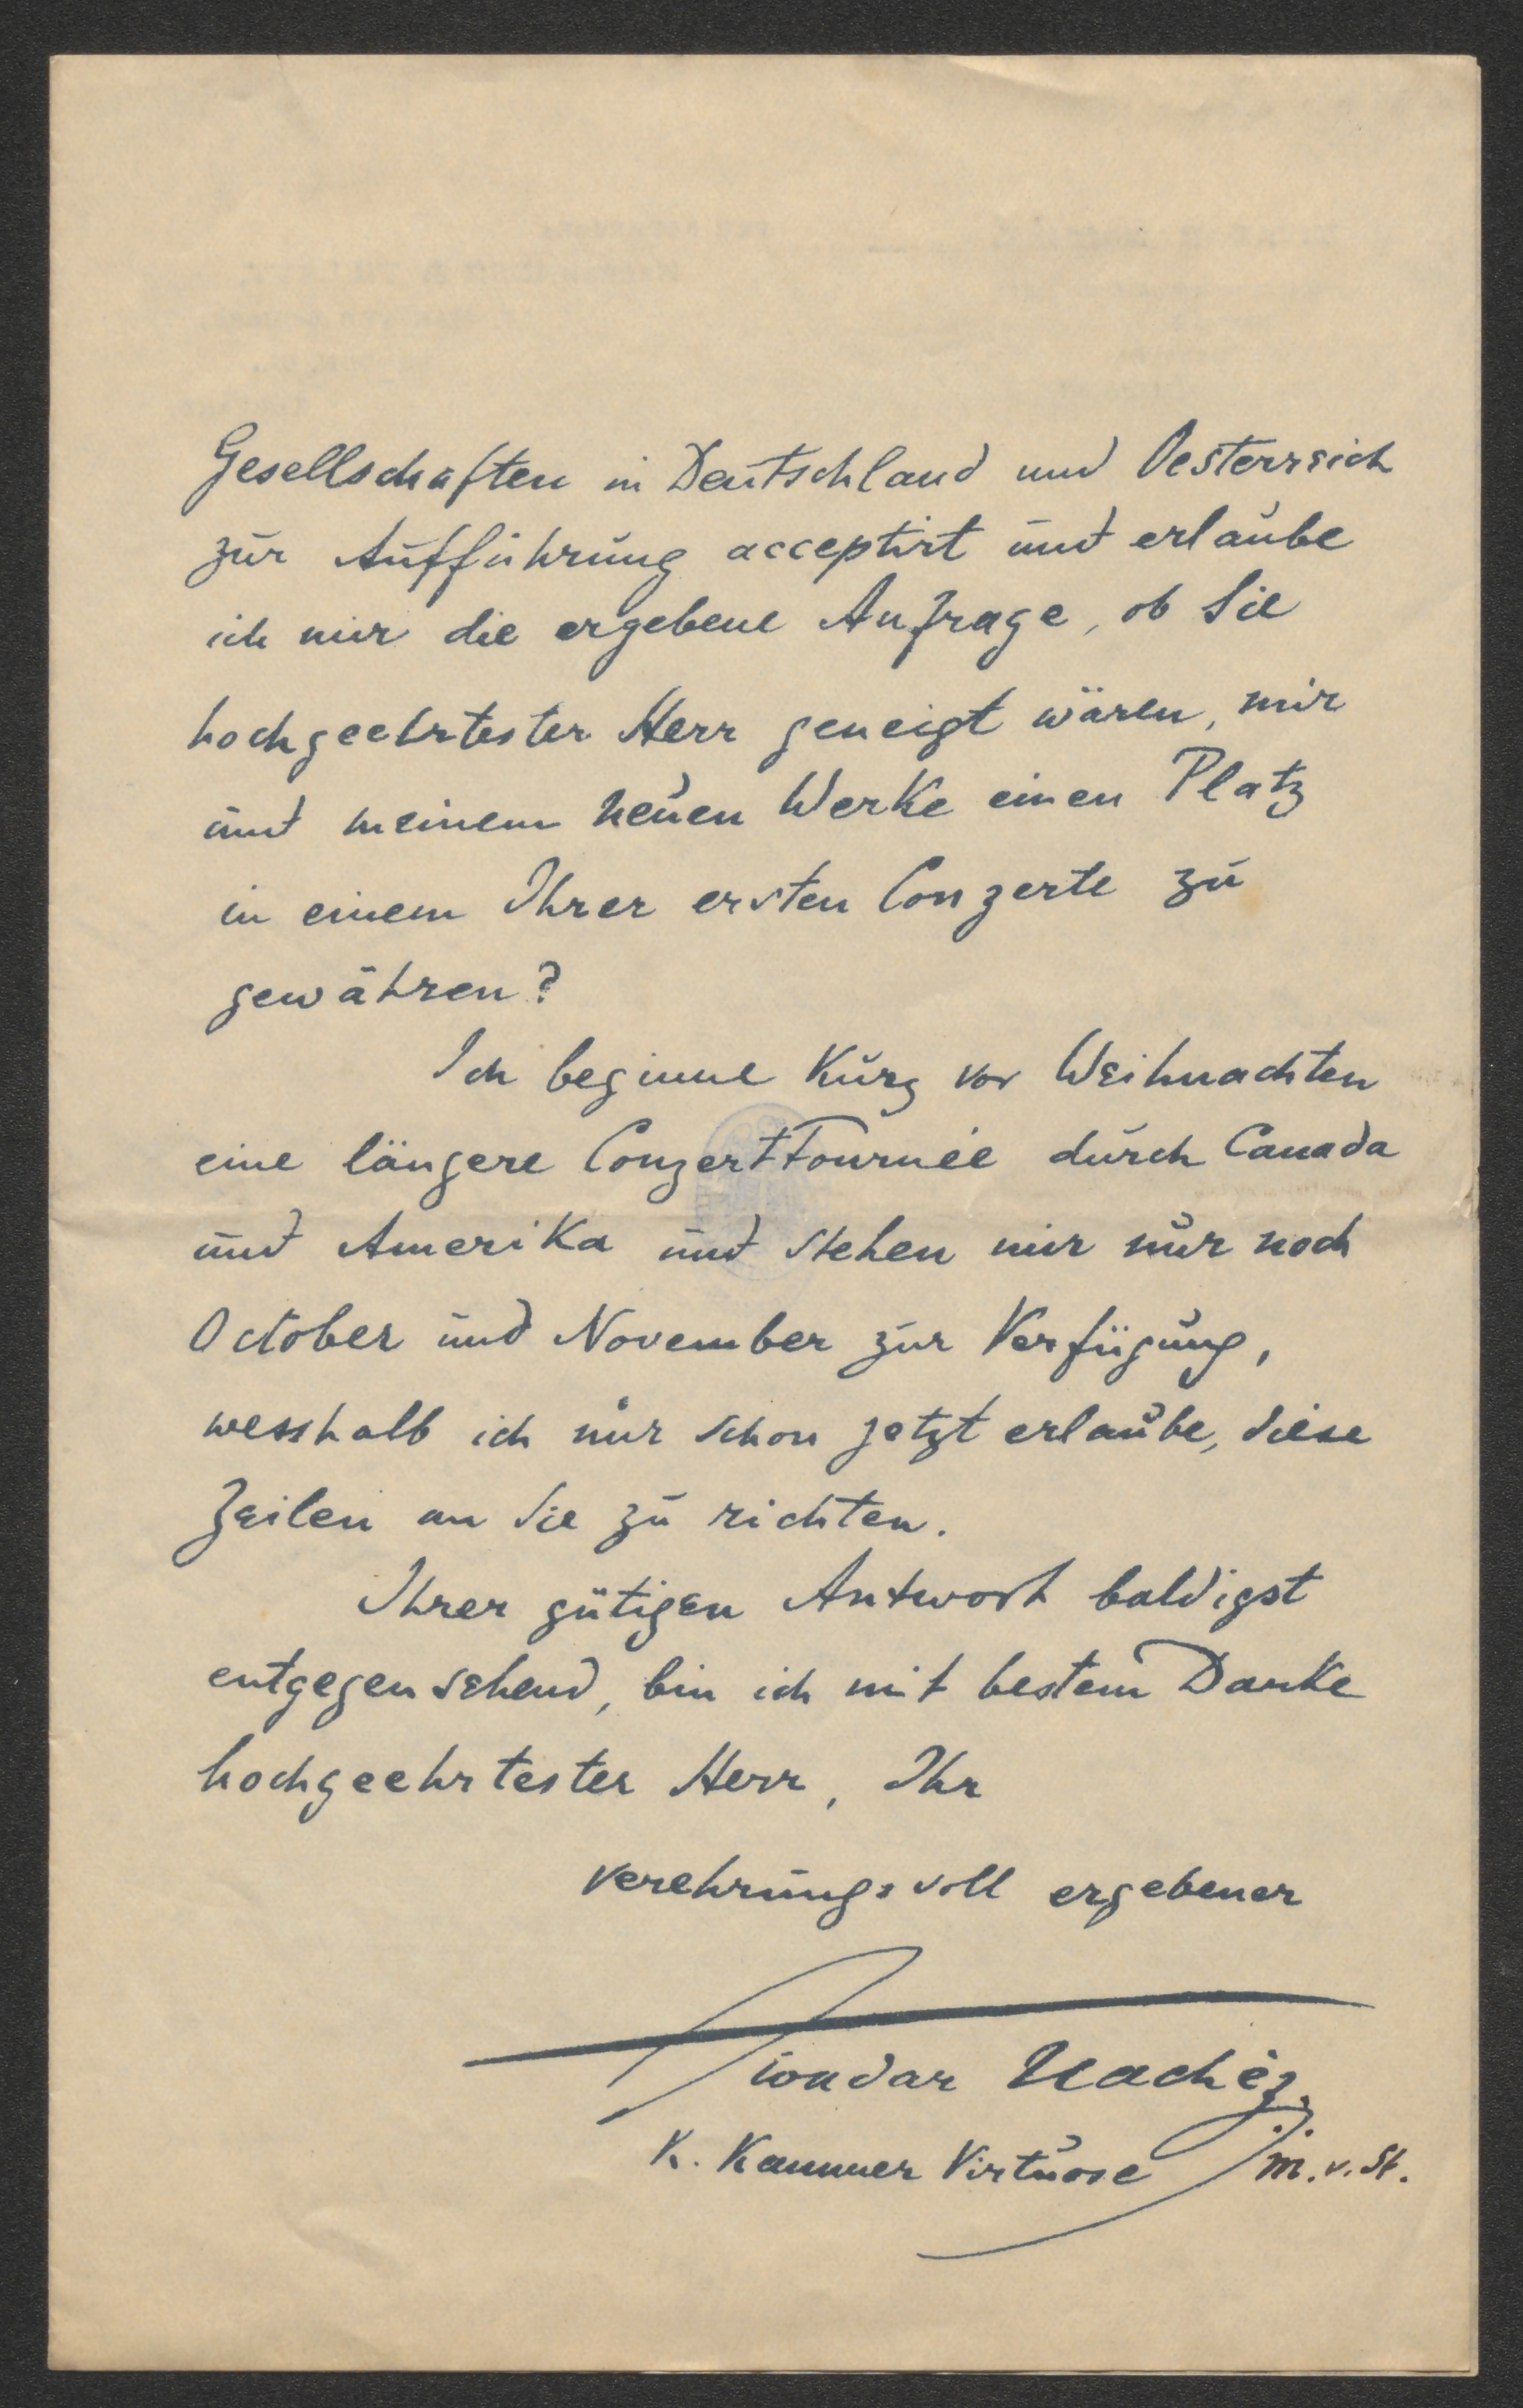 Gesellschaften in Deutschland und Oesterreich
zur Aufführung acceptirt und erlaube
ich mir die ergebene Anfrage, ob Sie
hochgeehrtester Herr geneigt wären, mir
und meinem neuen Werke einen Platz
in einem Ihrer ersten Conzerte zu
gewähren?
Ich beginne Kurz vor Weihnachten
eine längere ConzertTournée durch Canada
und Amerika und stehen mir nur noch
October und November zur Verfügung,
wesshalb ich mir schon jetzt erlaube, diese
Zeilen an Sie zu richten.
Ihrer gütigen Antwort baldigst
entgegensehend, bin ich mit bestem Danke
hochgeehrtester Herr, Ihr
verehrungsvoll ergebener
Tivadar Nachéz
K. Kammer Virtuose M. v. St.